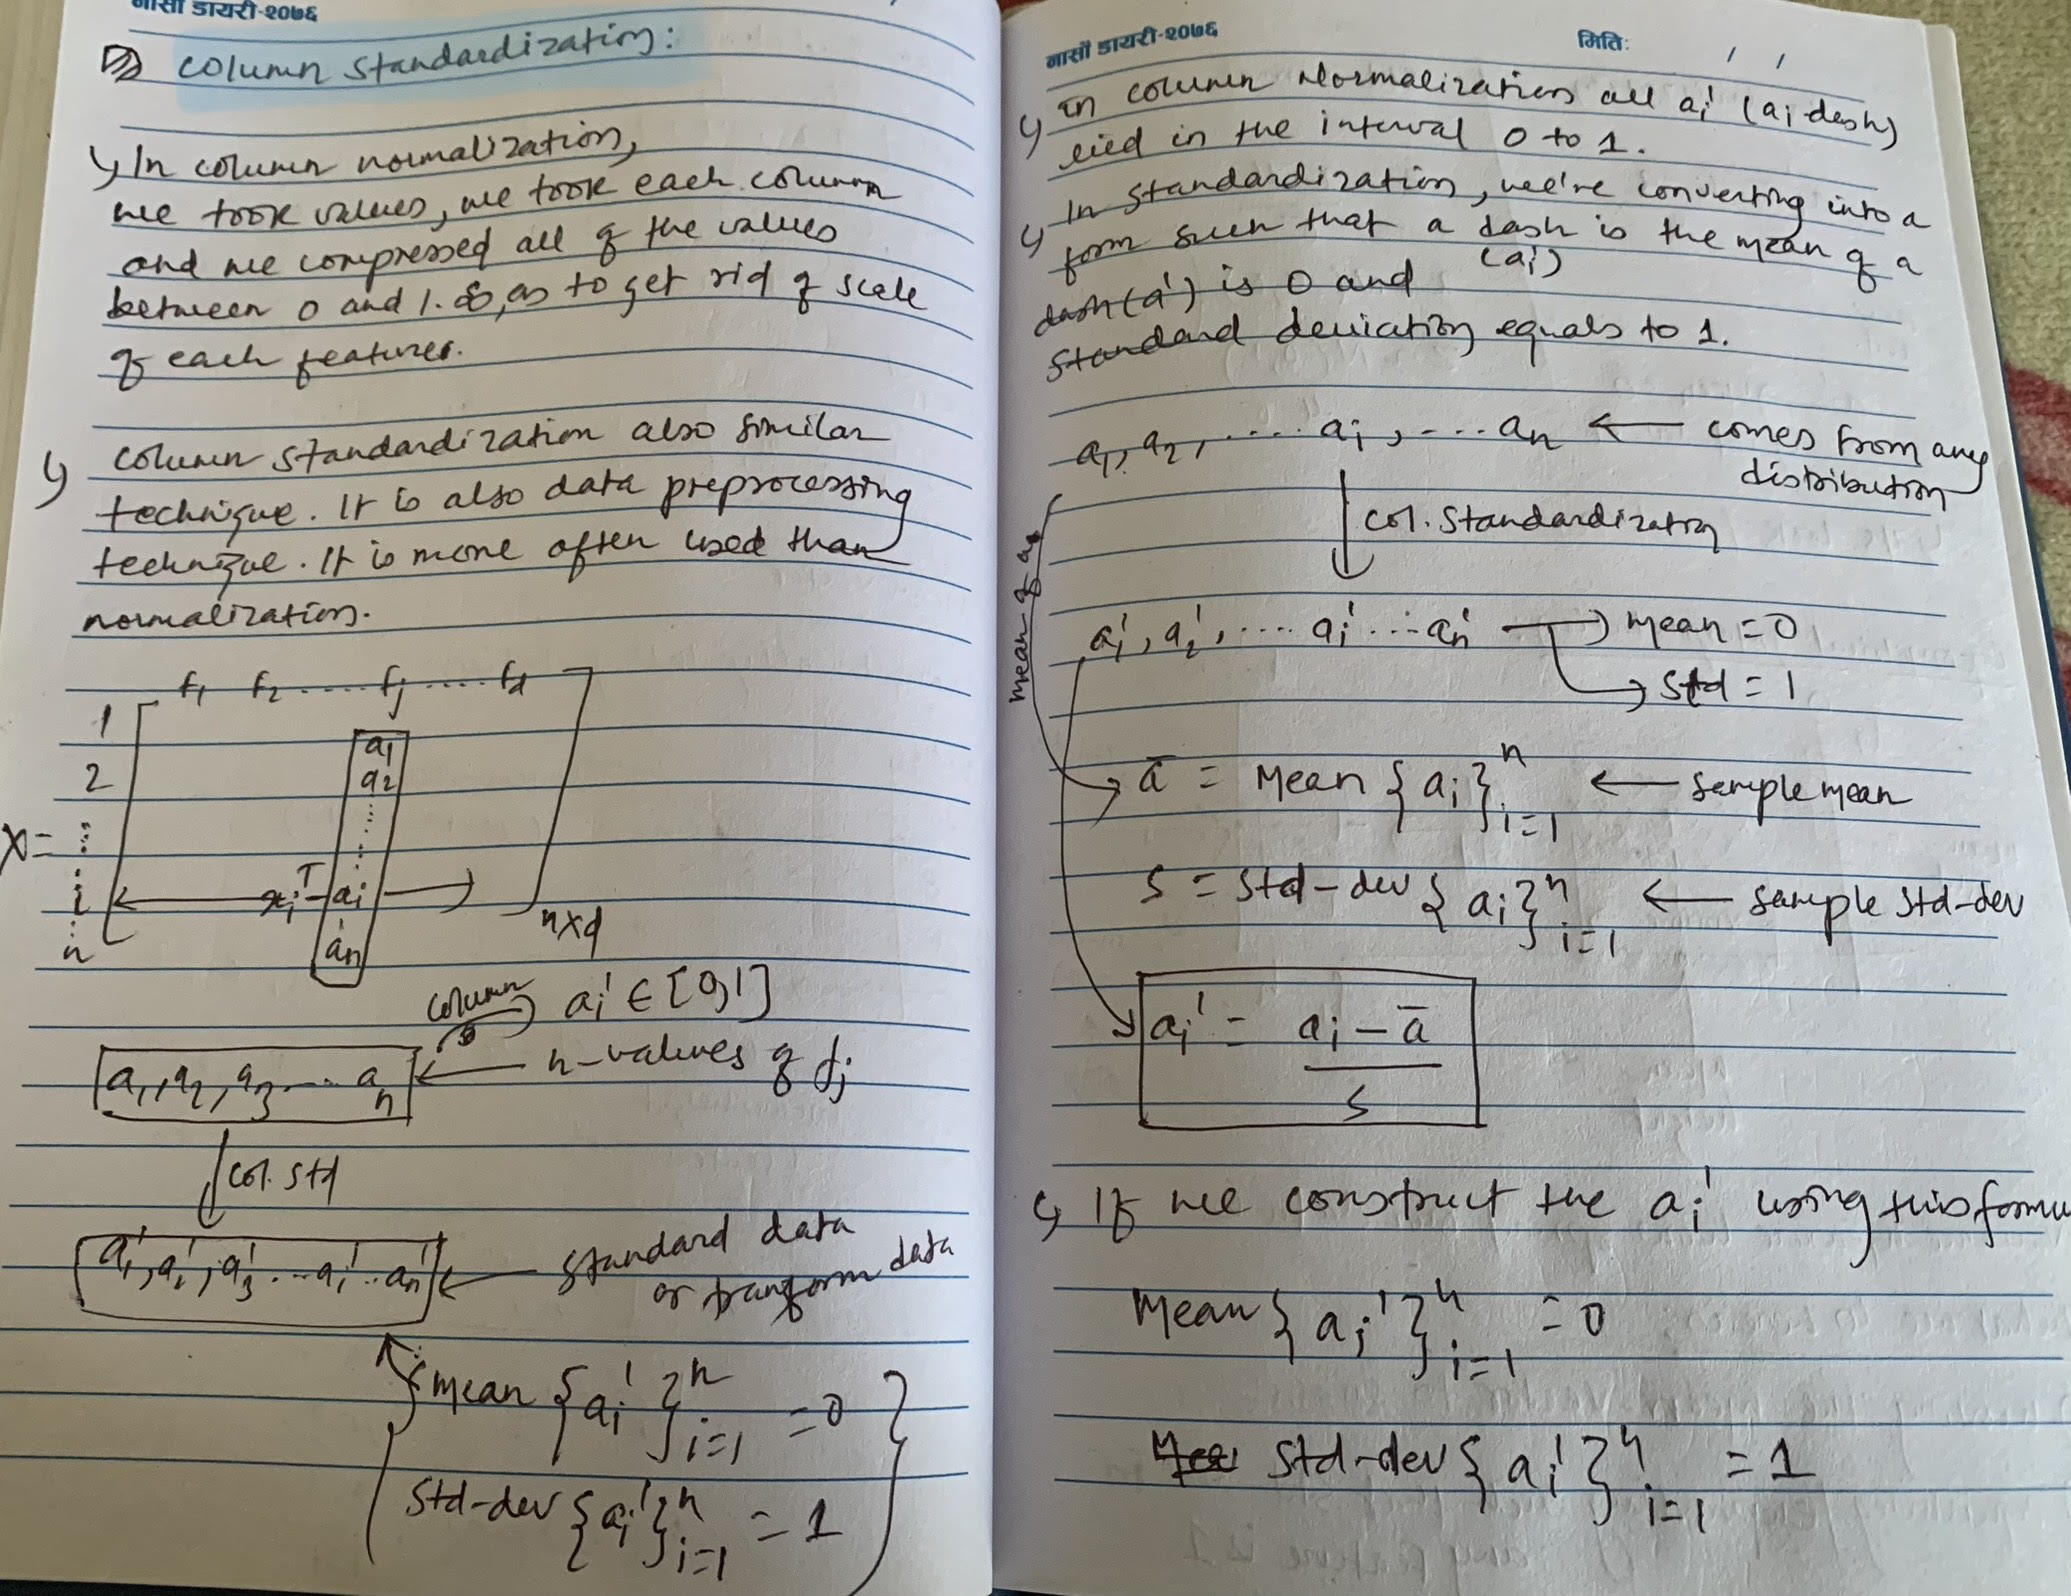 नासाँ डायरी-२०७६
Column Standardization:
In column normalization,
we took values, we took each column
and we compressed all of the values
between 0 and 1. So, as to get rid of scale
of each features.
column standardization also similar
technique. It is also data preprocessing
technique. It is more often used than
normalization.
f₁ f₂ ..... fj ..... fd
1
a₁
2
a₂
X =
i
xiᵀ ai
n
an
nxd
column
ai' ∈ [0,1]
a₁, a₂, a₃ .... an ← n-values of fj
↓ col. std
a₁', a₂', a₃' ... ai' .. an' ← standard data
or tranform data
mean {ai'}ⁿi=1 = 0
std-dev {ai'}ⁿi=1 = 1
नासाँ डायरी-२०७६
मितिः / /
in column Normalization all ai' (ai dash)
lied in the interval 0 to 1.
In standardization, we're converting into a
form such that a dash is the mean of a
(ai')
dash(a') is 0 and
standard deviation equals to 1.
a₁, a₂, .... ai, .... an ← comes from any
distribution
↓ col. Standardization
a₁', a₂', .... ai' ... an' → mean = 0
→ std = 1
mean of as
ā = Mean {ai}ⁿi=1 ← sample mean
s = std-dev {ai}ⁿi=1 ← sample std-dev
ai' = ai - ā
s
If we construct the ai' using this formu
Mean {ai'}ⁿi=1 = 0
std-dev {ai'}ⁿi=1 = 1